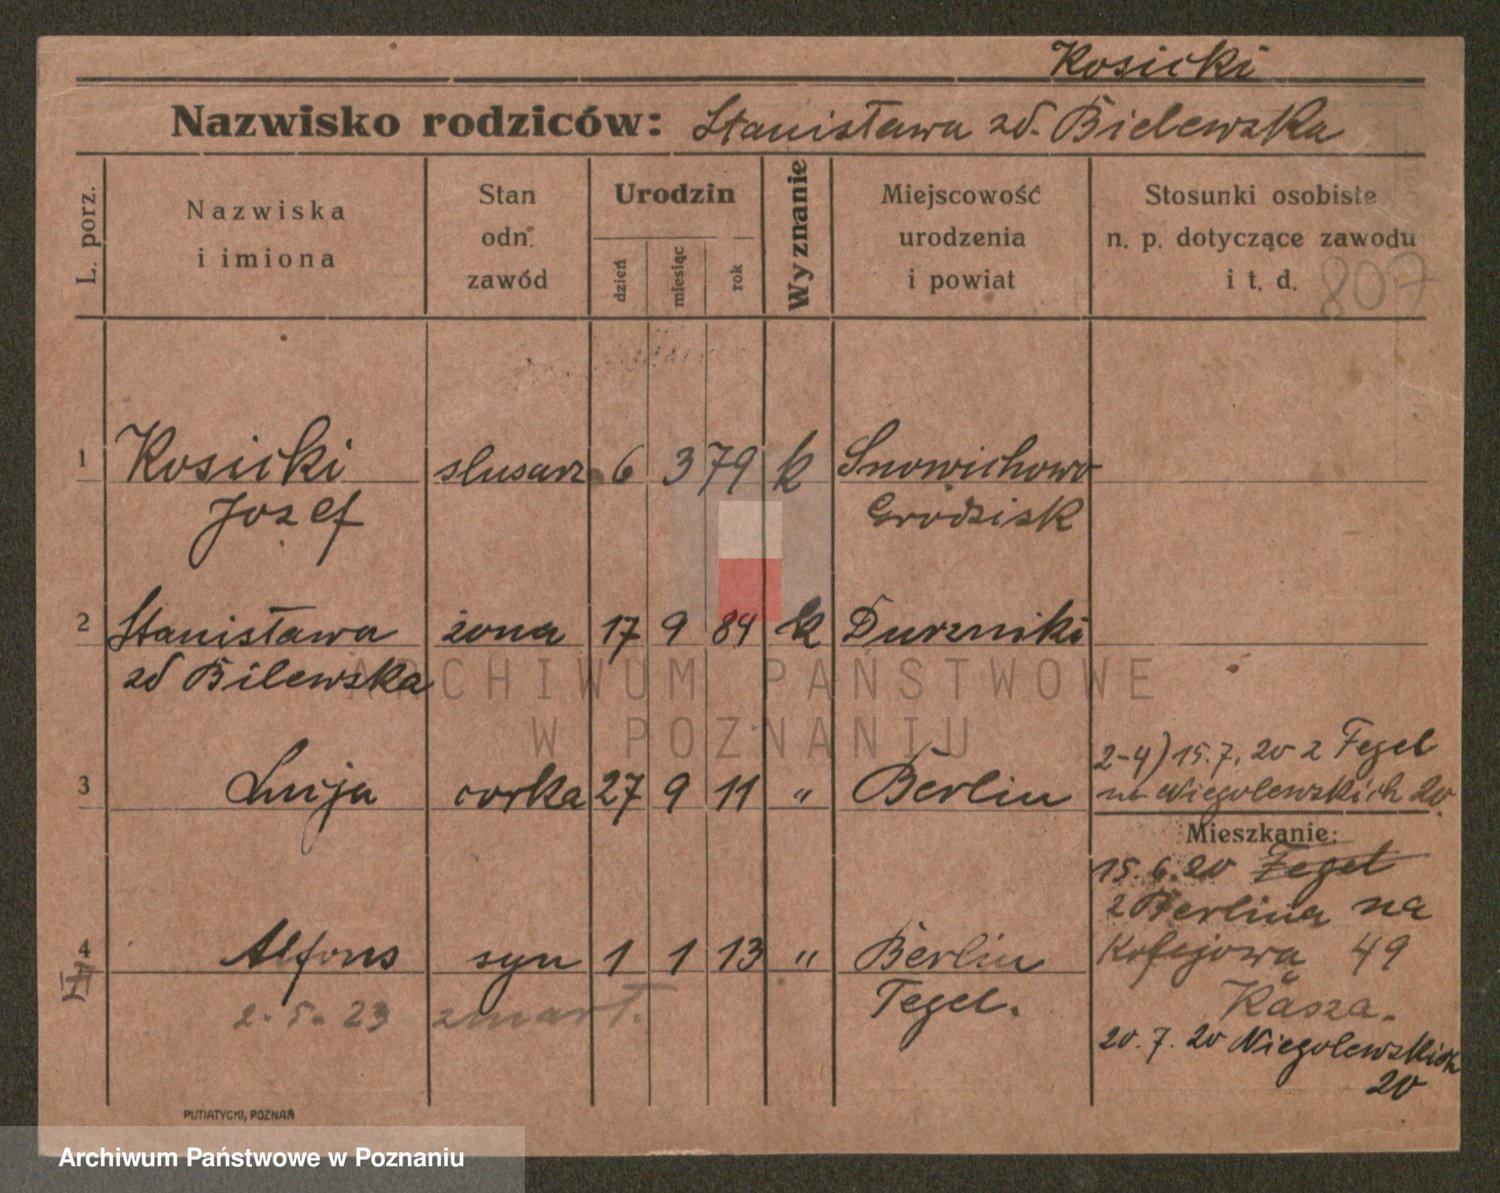 Kosicki
Nazwisko rodziców: Stanisława zd. Bielewska
L. porz.
Nazwiska
i imiona
Stan
odn.
zawód
Urodzin
dzień
miesiąc
rok
Wyznanie
Miejscowość
urodzenia
i powiat
Stosunki osobiste
n. p. dotyczące zawodu
i t. d.
807
1 Kosicki slusarz 6 3 79 k Snowichowo
Józef Grodzisk
2 Stanisława żona 17 9 84 k Duszniki
zd Bilewska
ARCHIWUM PAŃSTWOWE
W POZNANIU
2-4) 15.7.20 z Tegel
3 Lucja corka 27 9 11 " Berlin na Niegolewskich 20.
Mieszkanie:
15.6.20 Tegel
z Berlina na
4 Alfons syn 1 1 13 " Berlin Kolejową 49
II
2.5.23 zmarł. Tegel. Kasza.
20.7.20 Niegolewskich
20
PUTIATYCKI, POZNAŃ
Archiwum Państwowe w Poznaniu